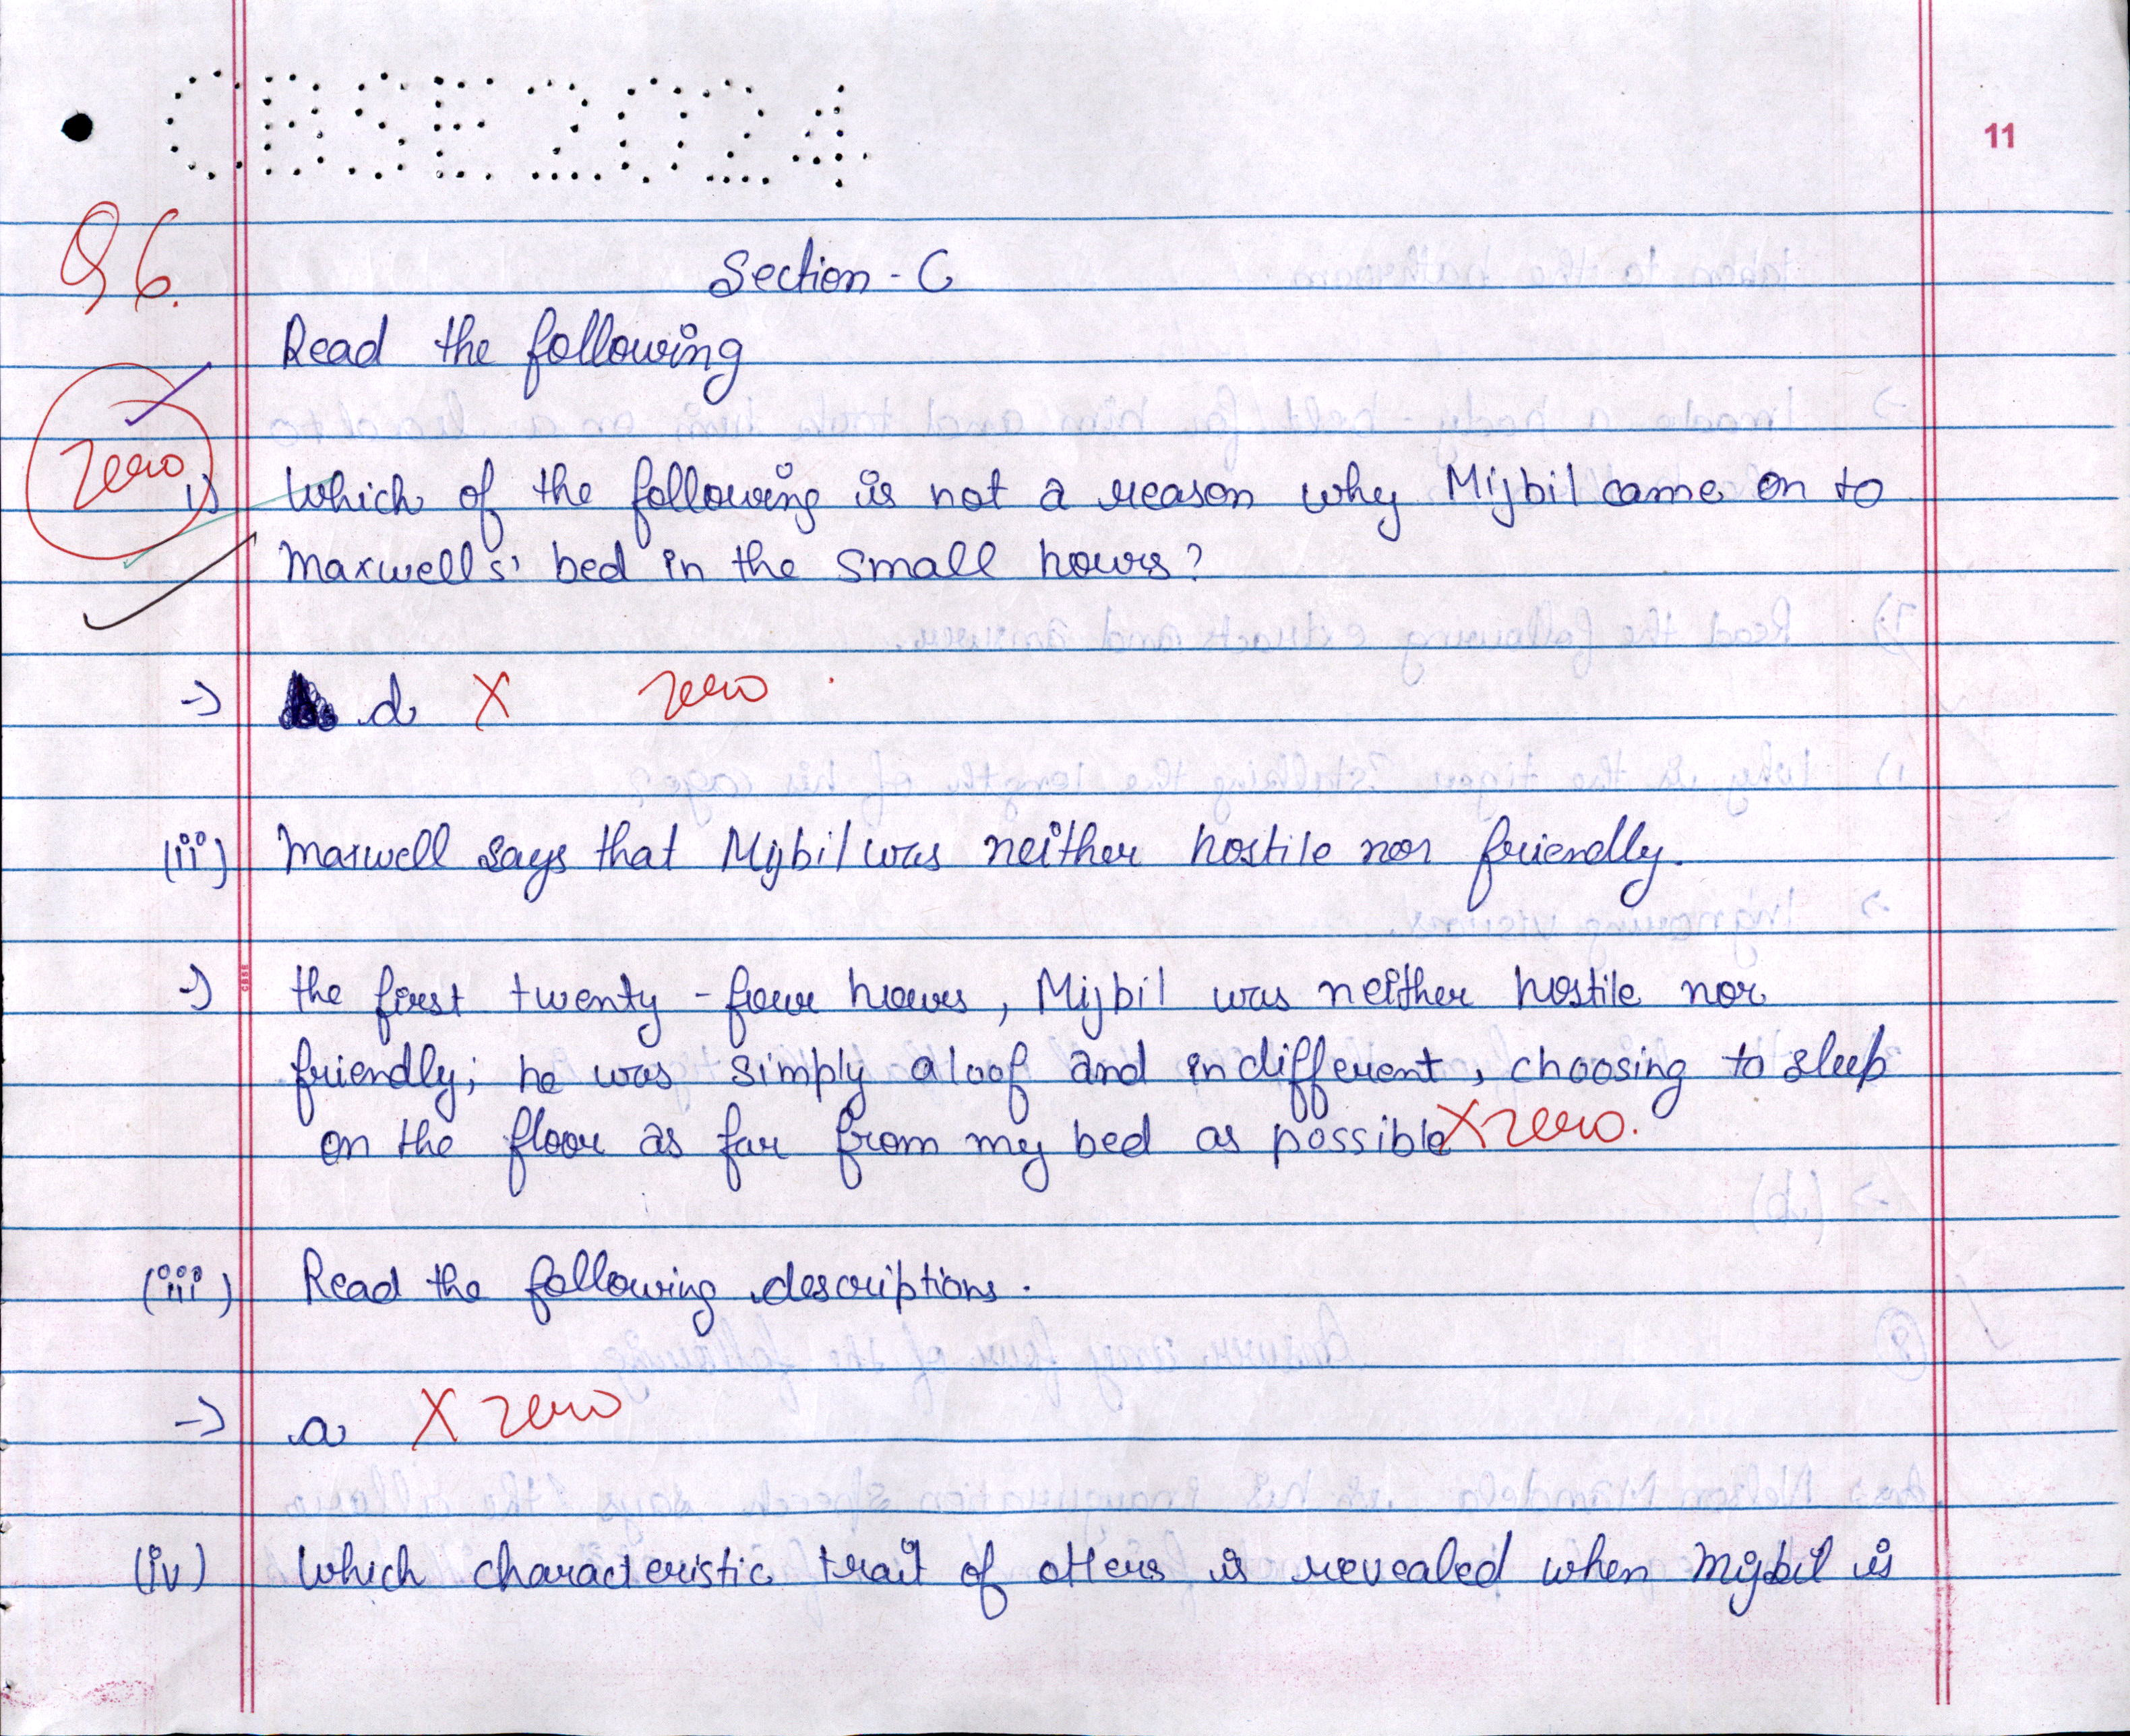 CBSE 2024
11
Q6.
Section - C
Read the following
Zero
i) Which of the following is not a reason why Mijbil came on to
Maxwells' bed in the small hours?
-> d X zero
(ii) Maxwell says that Mijbil was neither hostile nor friendly.
-> the first twenty-four hours, Mijbil was neither hostile nor
friendly; he was simply aloof and indifferent, choosing to sleep
on the floor as far from my bed as possible X zero.
(iii) Read the following descriptions.
-> a X zero
(iv) Which characteristic trait of otters is revealed when Mijbil is